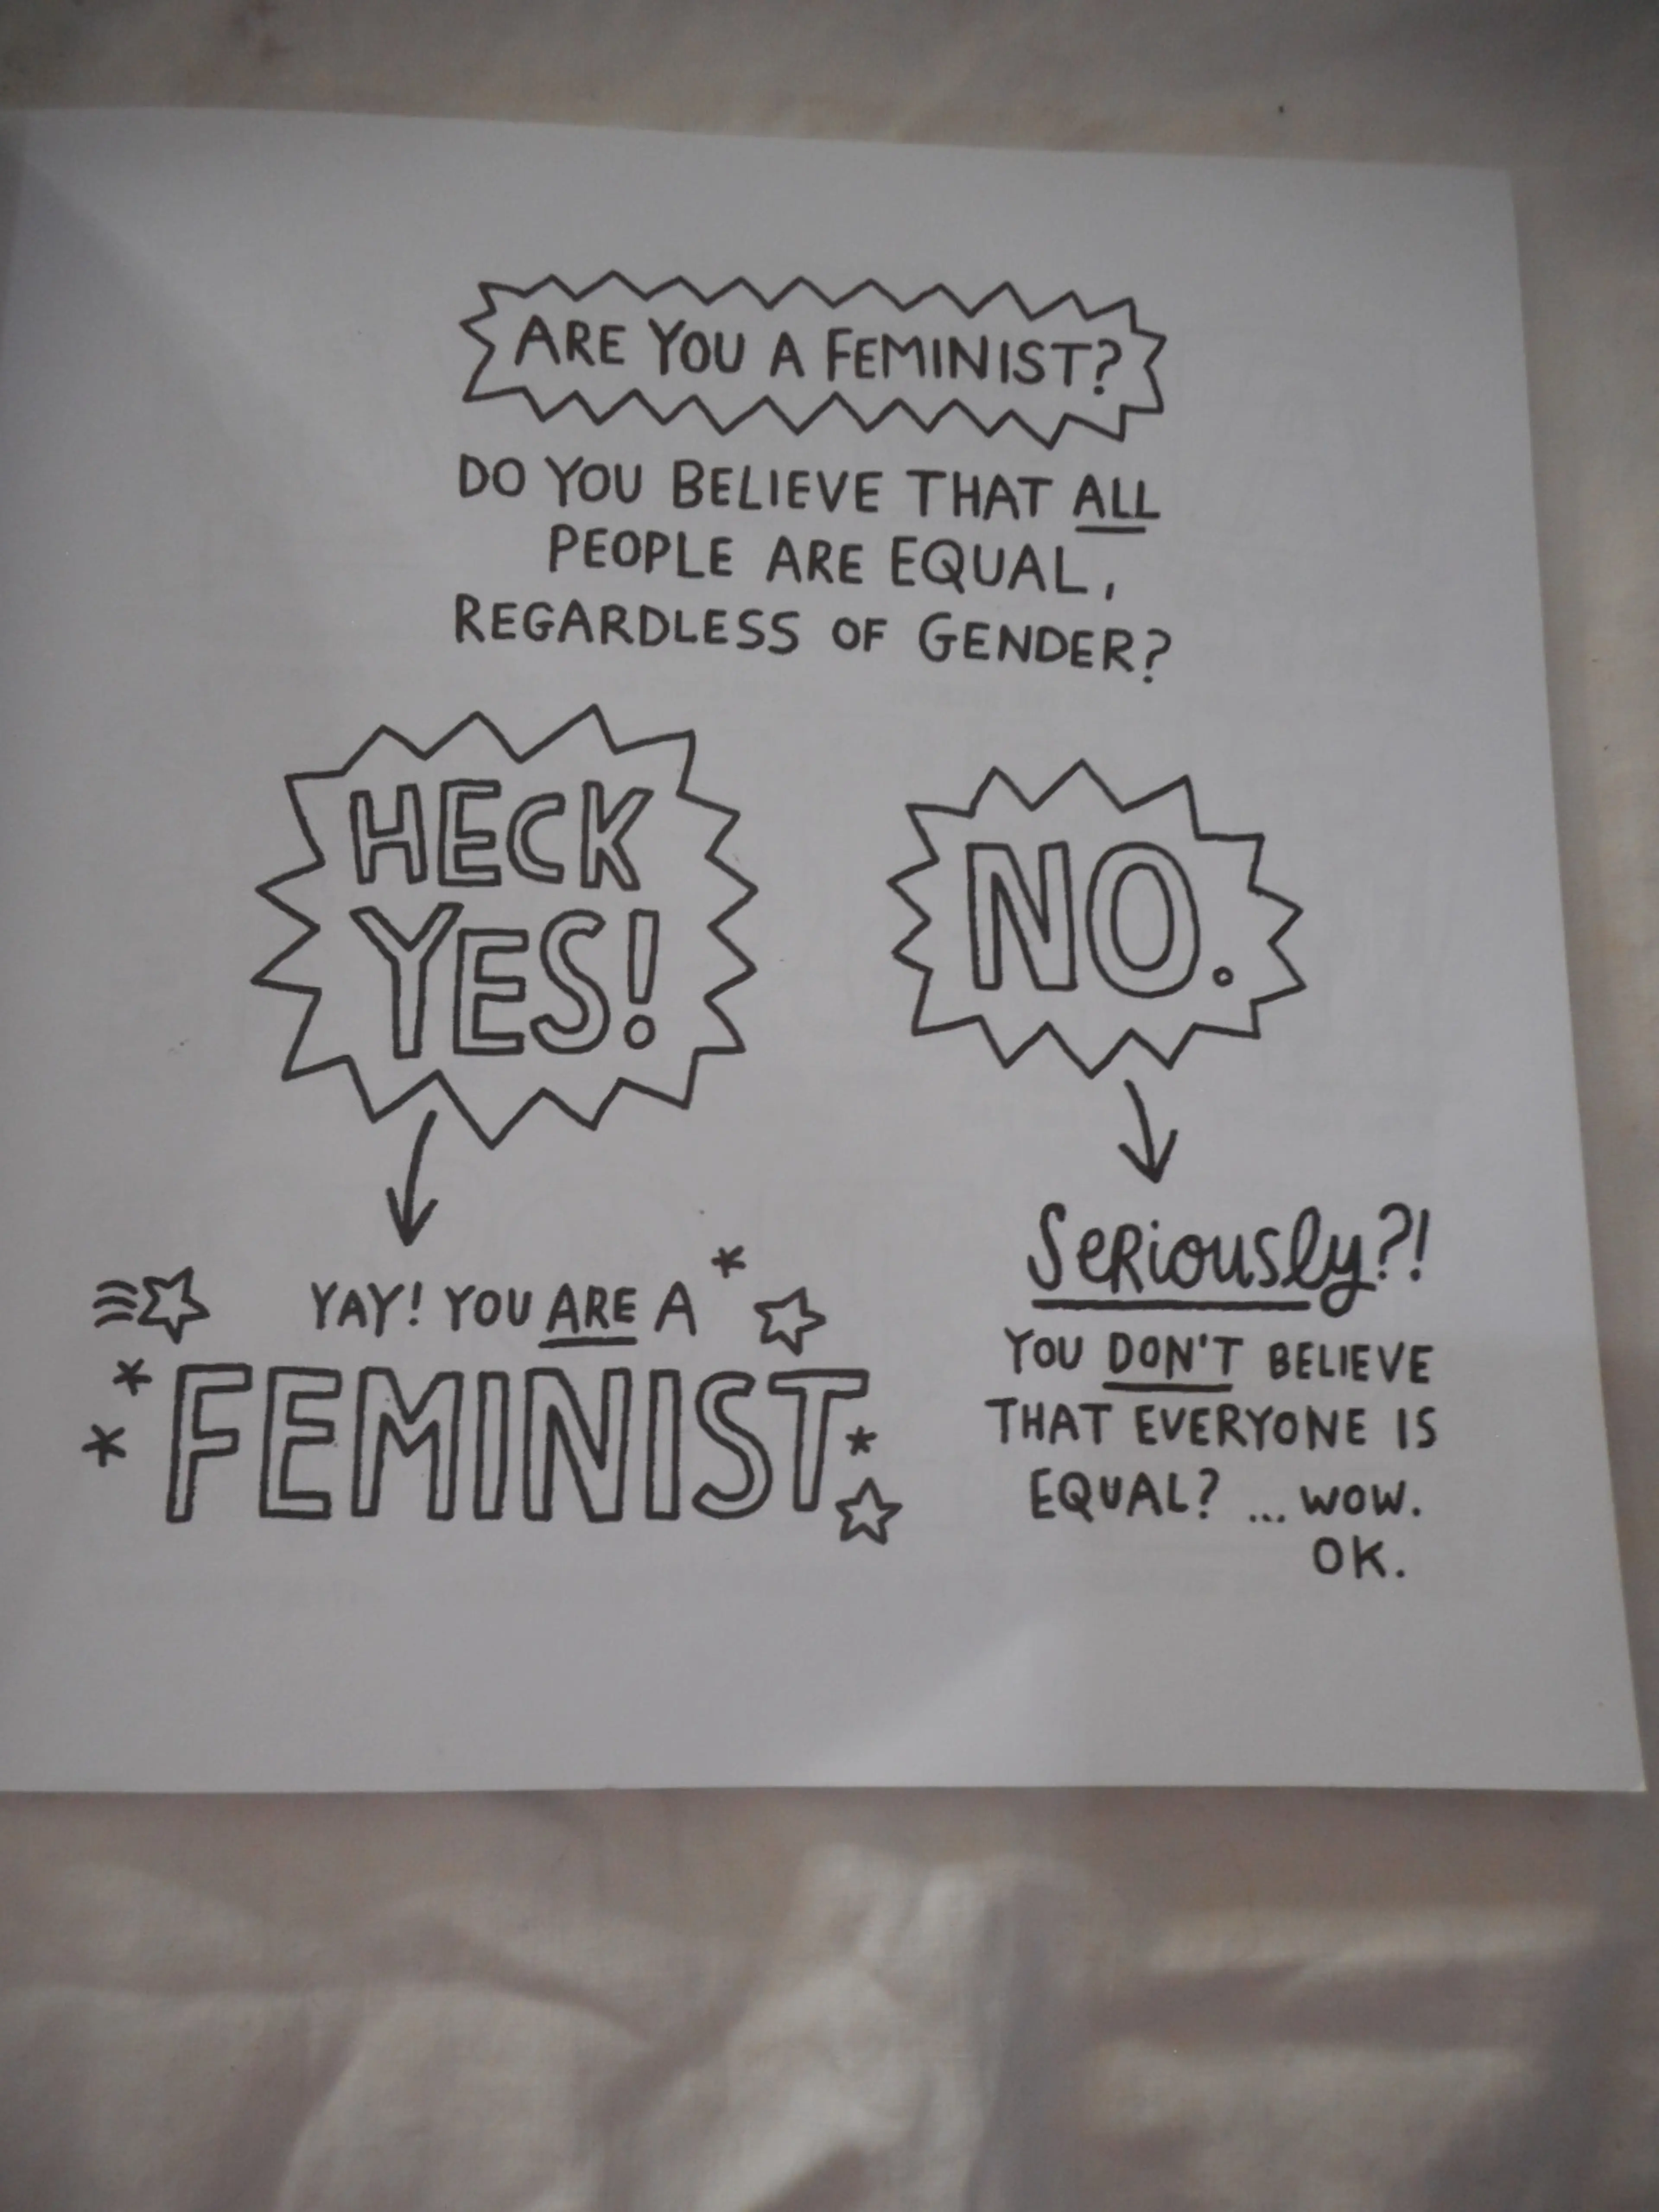 ARE YOU A FEMINIST?
DO YOU BELIEVE THAT ALL
PEOPLE ARE EQUAL,
REGARDLESS OF GENDER?
HECK
YES!
NO.
YAY! YOU ARE A
FEMINIST
SERiously?!
YOU DON'T BELIEVE
THAT EVERYONE IS
EQUAL? ... WOW.
OK.